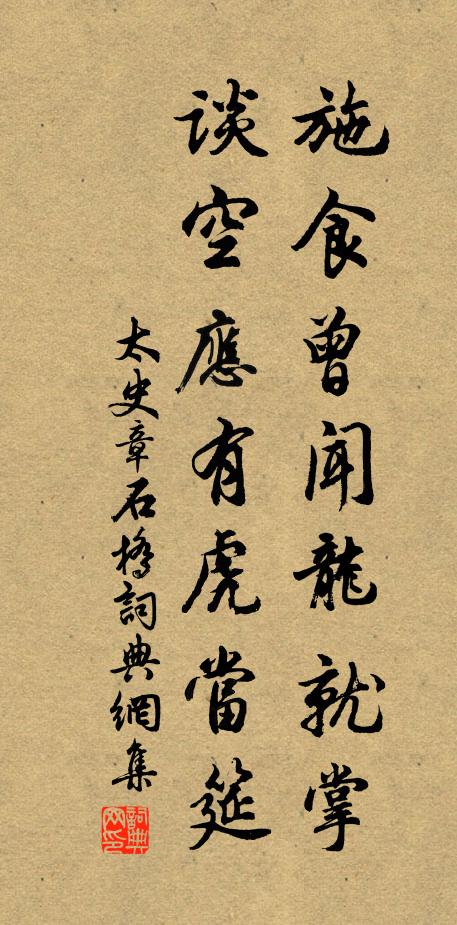 施食曾聞龍就掌
談空應有虎當筵
太史章石橋詞典網集
詞典网印